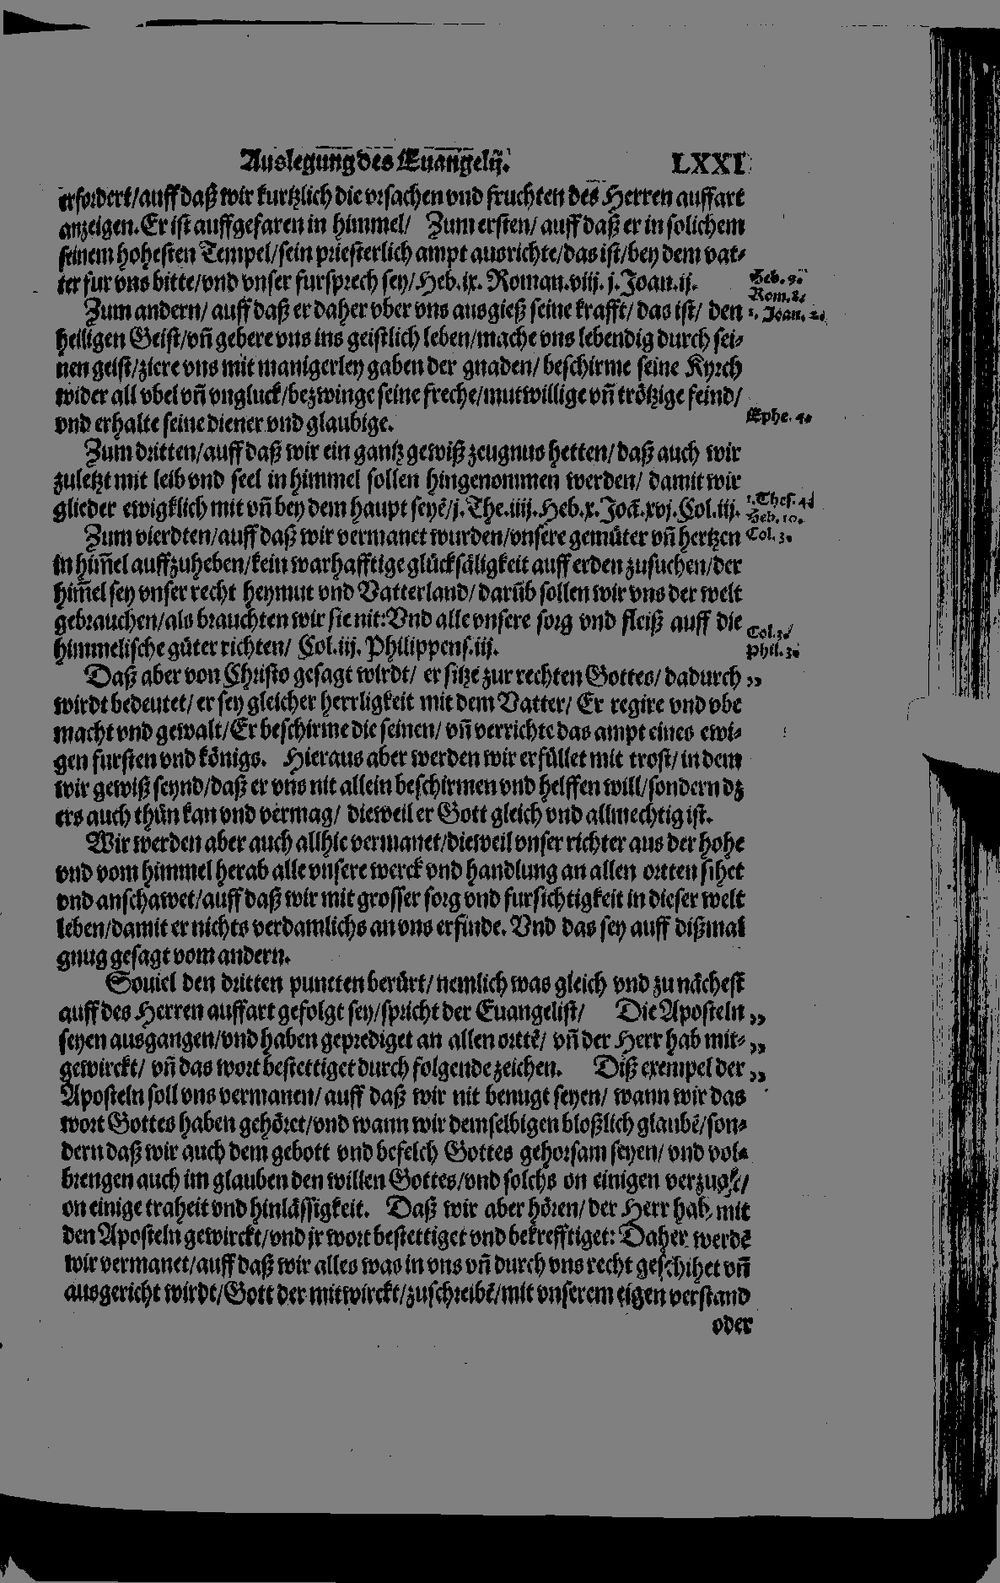 Auslegung des Euangelij. LXXI
erfordert/auff daß wir kurtzlich die vrsachen vnd fruchten des Herren auffart
anzeigen. Er ist auffgefaren in himmel/ Zum ersten/ auff daß er in solichem
seinem hohesten Tempel/sein priesterlich ampt ausrichte/das ist/bey dem vat-
ter fur vns bitte/vnd vnser fursprech sey/Heb.ix. Roman.viij. j.Joan.ij.
Heb. 9.
Rom. 8.
1. Joan. 2.
Zum andern/ auff daß er daher vber vns ausgieß seine krafft/ das ist/ den
heiligen Geist/vñ gebere vns ins geistlich leben/mache vns lebendig durch sei-
nen geist/ziere vns mit manigerley gaben der gnaden/ beschirme seine Kyrch
wider all vbel vñ vngluck/bezwinge seine freche/mutwillige vñ trötzige feind/
vnd erhalte seine diener vnd glaubige.
Ephe. 4.
Zum dritten/auff daß wir ein gantz gewiß zeugnus hetten/ daß auch wir
zuletzt mit leib vnd seel in himmel sollen hingenommen werden/ damit wir
glieder ewigklich mit vñ bey dem haupt seyẽ/j.The.iiij.Heb.x.Joã.xvj.Col.iij.
1. Thes. 4.
Heb. 10.
Col. 3.
Zum vierdten/auff daß wir vermanet wurden/vnsere gemüter vñ hertzen
in him̃el auffzuheben/kein warhafftige glücksäligkeit auff erden zusuchen/der
him̃el sey vnser recht heymut vnd Vatterland/ darũb sollen wir vns der welt
gebrauchen/als brauchten wir sie nit: Vnd alle vnsere sorg vnd fleiß auff die
himmelische güter richten/ Col.iij. Philippens.iij.
Col. 3.
Phil. 3.
Daß aber von Christo gesagt wirdt/ er sitze zur rechten Gottes/ dadurch „
wirdt bedeutet/ er sey gleicher herrligkeit mit dem Vatter/ Er regire vnd vbe
macht vnd gewalt/Er beschirme die seinen/ vñ verrichte das ampt eines ewi-
gen fursten vnd königs. Hieraus aber werden wir erfüllet mit trost/ in dem
wir gewiß seynd/daß er vns nit allein beschirmen vnd helffen will/sondern dz
ers auch thün kan vnd vermag/ dieweil er Gott gleich vnd allmechtig ist.
Wir werden aber auch allhie vermanet/dieweil vnser richter aus der hohe
vnd vom himmel herab alle vnsere werck vnd handlung an allen ortten sihet
vnd anschawet/auff daß wir mit grosser sorg vnd fursichtigkeit in dieser welt
leben/damit er nichts verdamlichs an vns erfinde. Vnd das sey auff dißmal
gnug gesagt vom andern.
Souiel den dritten puncten berürt/ nemlich was gleich vnd zu nächest
auff des Herren auffart gefolgt sey/spricht der Euangelist/ Die Aposteln „
seyen ausgangen/vnd haben geprediget an allen orttẽ/ vñ der Herr hab mit- „
gewirckt/ vñ das wort bestettiget durch folgende zeichen. Diß exempel der „
Aposteln soll vns vermanen/ auff daß wir nit benugt seyen/ wann wir das
wort Gottes haben gehöret/vnd wann wir demselbigen bloßlich glaubẽ/son-
dern daß wir auch dem gebott vnd befelch Gottes gehorsam seyen/ vnd vol-
brengen auch im glauben den willen Gottes/vnd solchs on einigen verzugk/
on einige traheit vnd hinlässigkeit. Daß wir aber hören/ der Herr hab mit
den Aposteln gewirckt/vnd jr wort bestettiget vnd bekrefftiget: Daher werdẽ
wir vermanet/auff daß wir alles was in vns vñ durch vns recht geschihet vñ
ausgericht wirdt/Gott der mitwirckt/zuschreibẽ/mit vnserem eigen verstand
oder